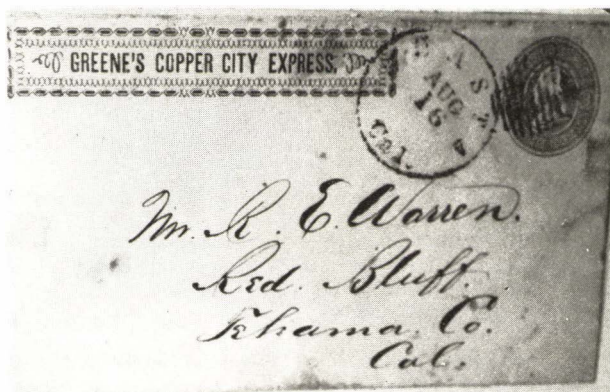 GREENE'S COPPER CITY EXPRESS.
AUG
16
Cal.
Mr. R. E. Warren.
Red. Bluff.
Tehama. Co.
Cal.